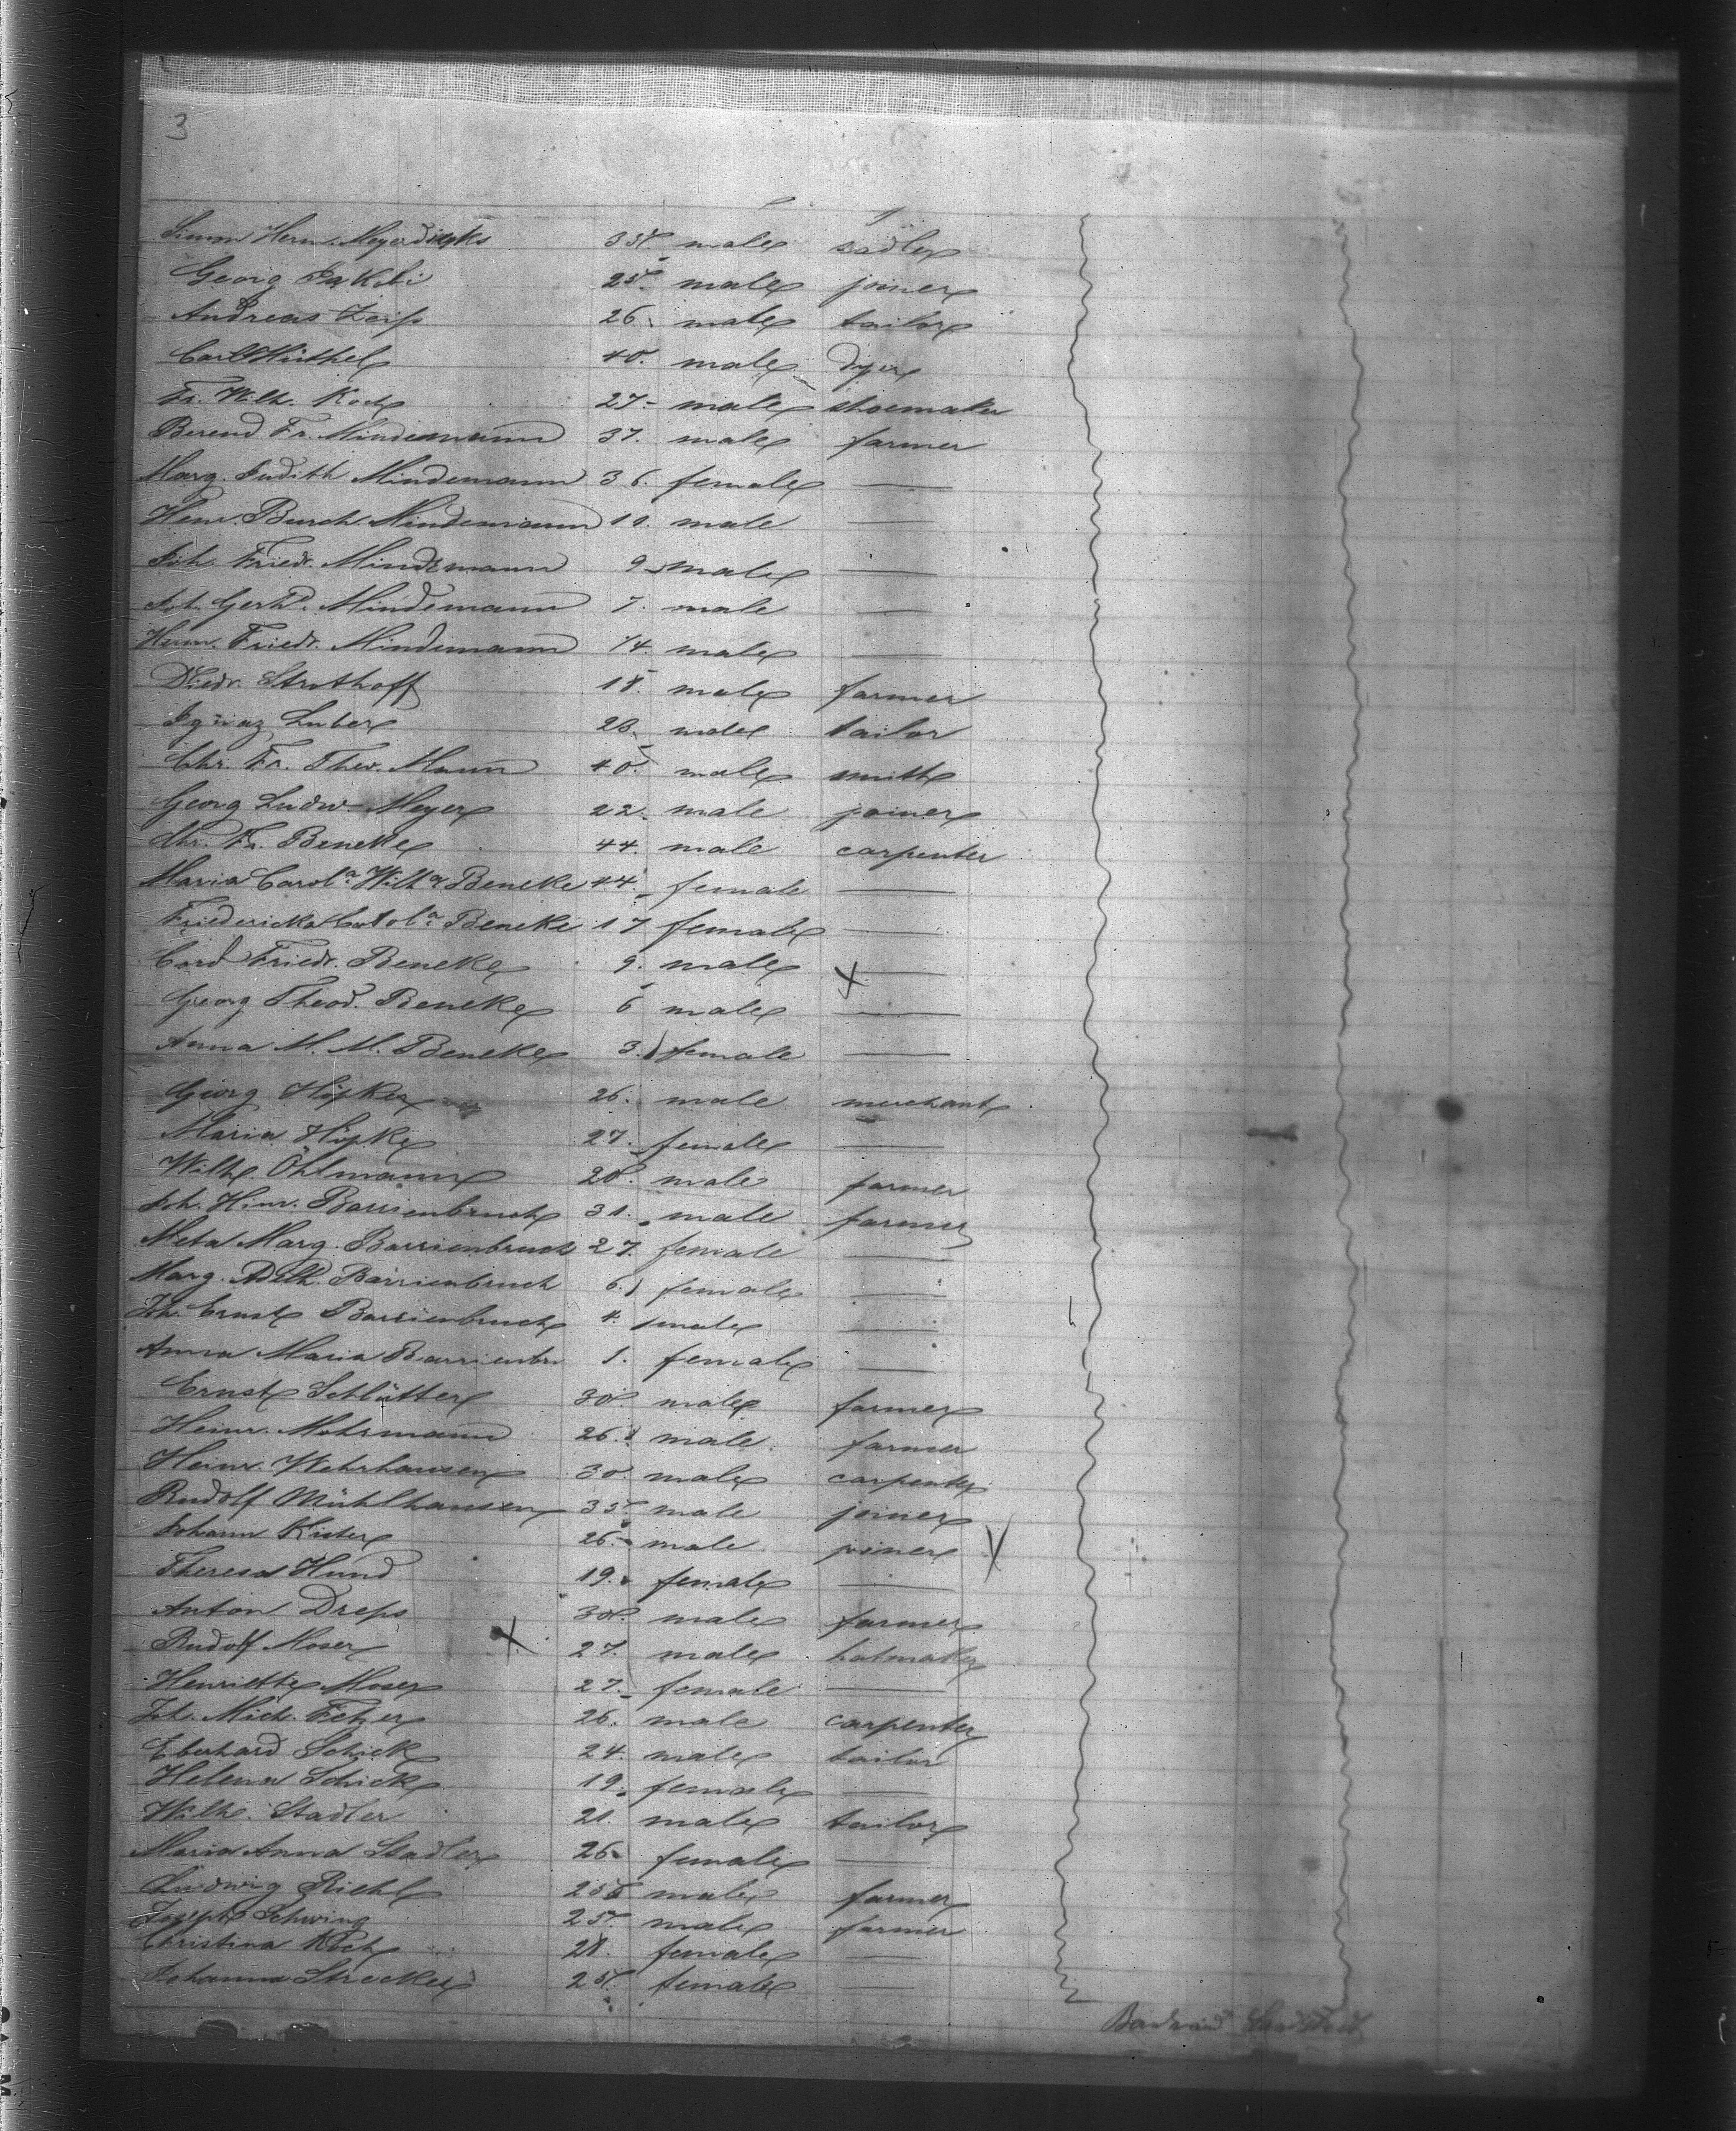 3
Herm. Meyerdierks 35. male sadler
Georg 25. male joiner
Andreas Zeiss 26. male tailor
Carl Hüthel 40. male dyer
Fr. Wilh. Koch 27. male shoemaker
Berend Fr. Mindemann 37. male farmer
Marg. Judith Mindemann 36. female —
Heinr. Burch. Mindemann 11. male —
Joh. Friedr. Mindemann 9. male —
Joh. Gerhd. Mindemann 7. male —
Herm. Friedr. Mindemann 14. male —
Diedr. Struthoff 18. male farmer
Ignaz Luber 28. male tailor
Chr. Fr. Theo. Mann 40. male smith
Georg Ludw. Meyer 22. male joiner
Chr. Fr. Beneke 44. male carpenter
Maria Carola Wilha Beneke 44. female —
Friedericka Carola Beneke 17 female —
Cord Friedr. Beneke 9. male —
Georg Theod. Beneke 6 male —
Anna M. M. Beneke 3. female —
Georg Höpke 26. male merchant
Maria Höpke 27. female —
Wilh. Öhlmann 20. male farmer
Joh. Hinr. Barrienbruch 31. male farmer
Meta Marg. Barrienbruch 27. female —
Marg. Adelh. Barrienbruch 6. female —
Joh. Ernst Barrienbruch 4. male —
Anna Maria Barrienbr 1. female —
Ernst Schlütter 30. male farmer
Heinr. Mohrmann 26. male farmer
Heinr. Wehrhausen 30. male carpenter
Rudolf Mühlhausen 35. male joiner
Johann Kister 26. male joiner
Theresa Hund 19. female —
Anton Dreps 30. male farmer
Rudolf Moser 27. male hatmaker
Henriette Moser 27. female —
Joh. Mich. Fetzer 26. male carpenter
Eberhard Schick 24. male tailor
Helena Schick 19. female —
Wilh. Stadler 21. male tailor
Maria Anna Stadler 26. female —
Ludwig Riehl 25. male farmer
Joseph Schwing 25. male farmer
Christina Koch 28. female —
Johanna Strecker 25. female —